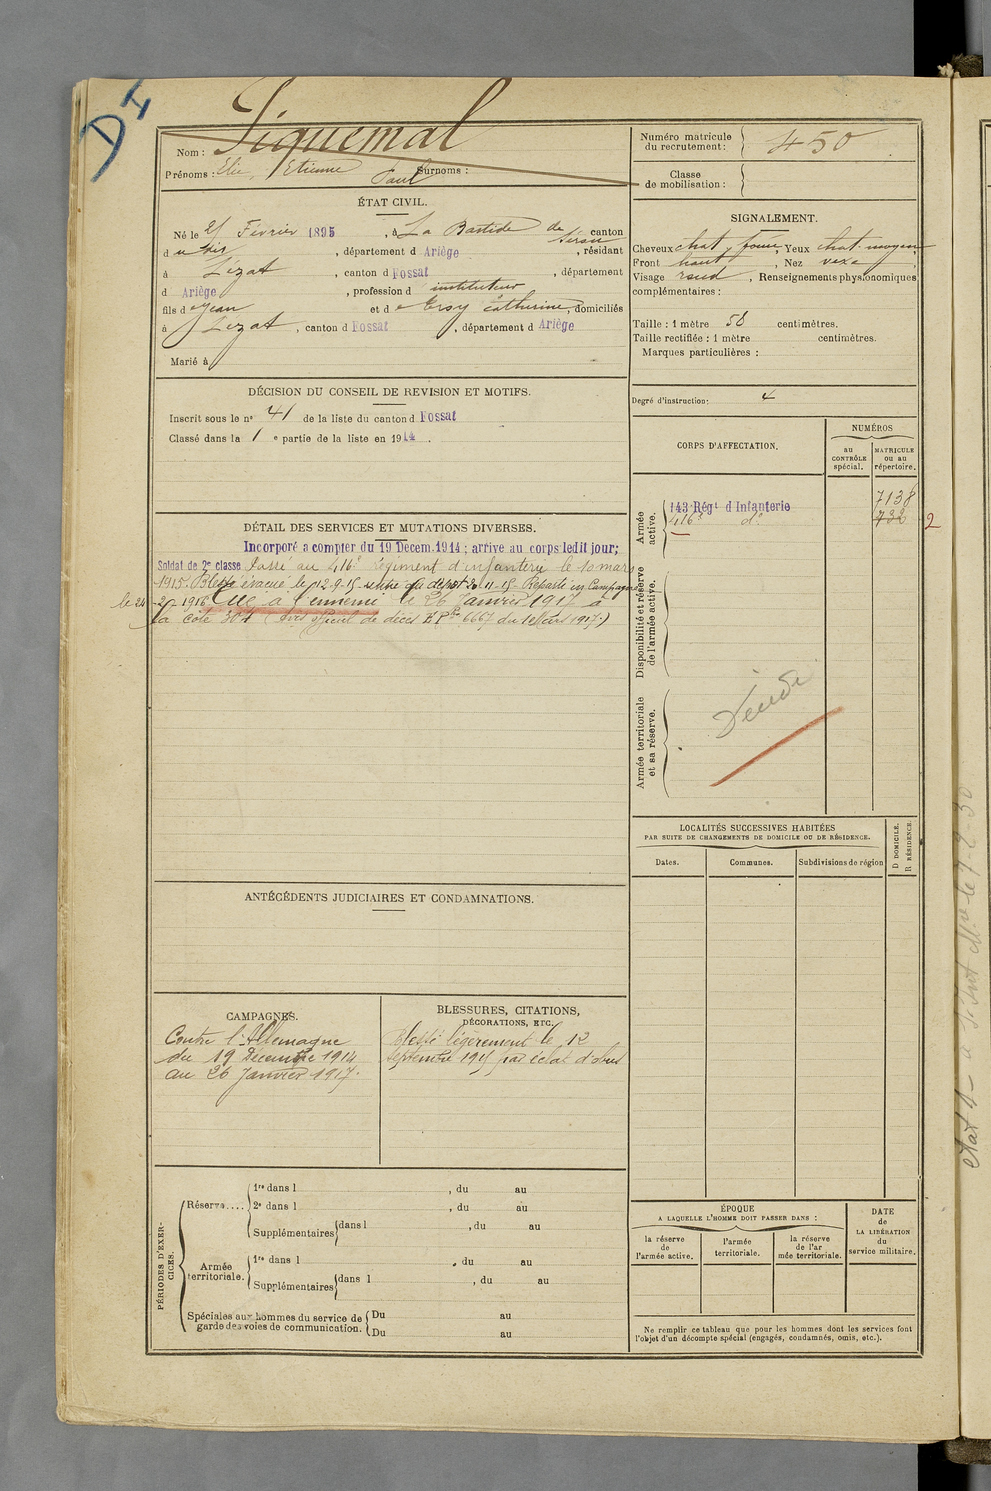 DI
Nom : Siquemal
Prénoms : Elie, Etienne Paul Surnoms :
Numéro matricule du recrutement : 450
Classe de mobilisation :
ÉTAT CIVIL.
Né le 21 Février 1895, à La Bastide de Sérou canton
d u dit, département d Ariège, résidant
à Lézat, canton d Fossat, département
d Ariège, profession d instituteur
fils de Jean et de Ersy Catherine, domiciliés
à Lézat, canton d Fossat, département d Ariège
Marié à
SIGNALEMENT.
Cheveux chat. foncé, Yeux chat. moyen
Front haut, Nez vexe
Visage rond, Renseignements physionomiques
complémentaires :
Taille : 1 mètre 58 centimètres.
Taille rectifiée : 1 mètre centimètres.
Marques particulières :
Degré d'instruction: 4
DÉCISION DU CONSEIL DE REVISION ET MOTIFS.
Inscrit sous le n° 41 de la liste du canton d Fossat
Classé dans la 1 e partie de la liste en 1914.
CORPS D'AFFECTATION.
NUMÉROS
au CONTRÔLE spécial.
MATRICULE ou au répertoire.
Armée active.
143 Régt d Infanterie 7138
416e do 732 2
Disponibilité et réserve de l'armée active.
Armée territoriale et sa réserve.
DÉTAIL DES SERVICES ET MUTATIONS DIVERSES.
Incorporé a compter du 19 Décem. 1914 ; arrive au corps ledit jour;
Soldat de 2e classe Passé au 416e régiment d'infanterie le 10 mars
1915 Blessé évacué le 12-9-15 rentré au dépôt 20-11-15 Reparti en Campagne
le 24-2-1916 Tué à l'ennemi le 26 Janvier 1917 à
la côte 304 (avis officiel de décès 6667 du 1 Mars 1917.)
LOCALITÉS SUCCESSIVES HABITÉES
PAR SUITE DE CHANGEMENTS DE DOMICILE OU DE RÉSIDENCE.
Dates.
Communes.
Subdivisions de région
D DOMICILE.
R RÉSIDENCE.
ANTÉCÉDENTS JUDICIAIRES ET CONDAMNATIONS.
CAMPAGNES.
Contre l'Allemagne
du 19 Décembre 1914
au 26 Janvier 1917.
BLESSURES, CITATIONS,
DÉCORATIONS, ETC.
Blessé légèrement le 12
Septembre 1915 par éclat d'obus
PÉRIODES D'EXERCICES.
Réserve....
1re dans l , du au
2e dans l , du au
Supplémentaires dans l , du au
Armée territoriale.
1re dans l , du au
Supplémentaires dans l , du au
Spéciales aux hommes du service de
garde des voies de communication.
Du au
Du au
ÉPOQUE
A LAQUELLE L'HOMME DOIT PASSER DANS :
la réserve de l'armée active.
l'armée territoriale.
la réserve de l'ar mée territoriale.
DATE
de
LA LIBÉRATION
du
service militaire.
Ne remplir ce tableau que pour les hommes dont les services font
l'objet d'un décompte spécial (engagés, condamnés, omis, etc.).